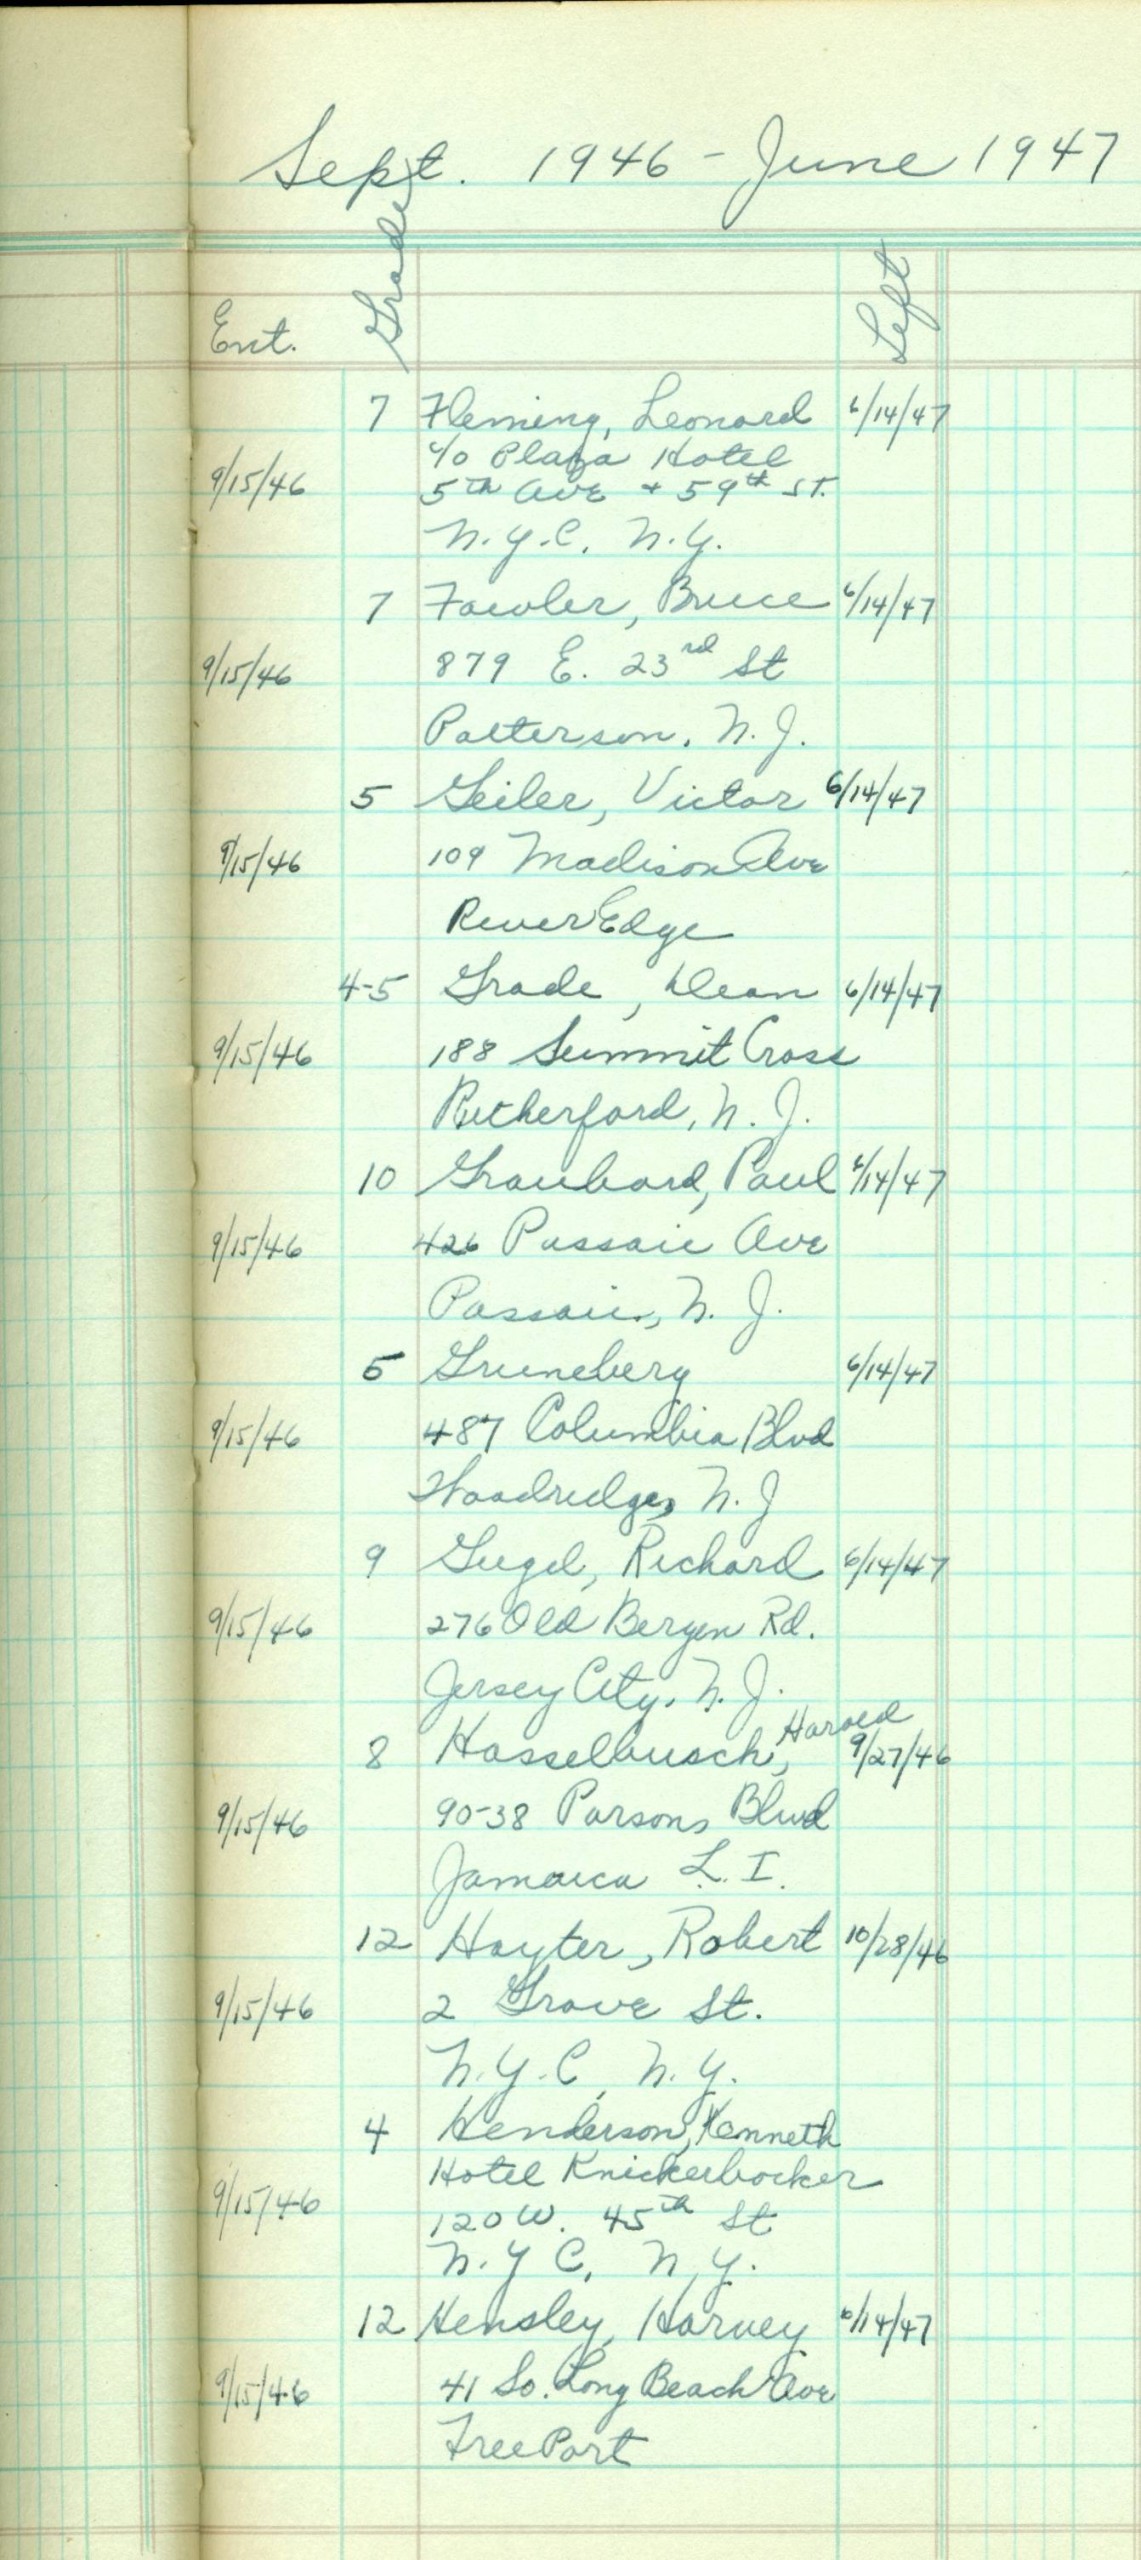 Sept. 1946 - June 1947
Ent. Grade Left
7 Fleming, Leonard 6/14/47
c/o Plaza Hotel
9/15/46 5th Ave + 59th St.
N.Y.C. N.Y.
7 Fowler, Bruce 6/14/47
9/15/46 879 E. 23rd St
Patterson, N.J.
5 Geiler, Victor 6/14/47
9/15/46 109 Madison Ave
River Edge
4-5 Grade, Dean 6/14/47
9/15/46 188 Summit Cross
Rutherford, N.J.
10 Graubard, Paul 6/14/47
9/15/46 426 Passaic Ave
Passaic, N.J.
5 Gruneberg 6/14/47
9/15/46 487 Columbia Blvd
Woodridge, N.J
9 Gugel, Richard 6/14/47
9/15/46 276 Old Bergen Rd.
Jersey City, N.J.
8 Hasselbusch, Harold 9/27/46
9/15/46 90-38 Parsons Blvd
Jamaica L.I.
12 Hayter, Robert 10/28/46
9/15/46 2 Grove St.
N.Y.C, N.Y.
4 Henderson, Kenneth
Hotel Knickerbocker
9/15/46 120 W. 45th St
N.Y C, N.Y.
12 Hensley, Harvey 6/14/47
9/15/46 41 So. Long Beach Ave
FreePort